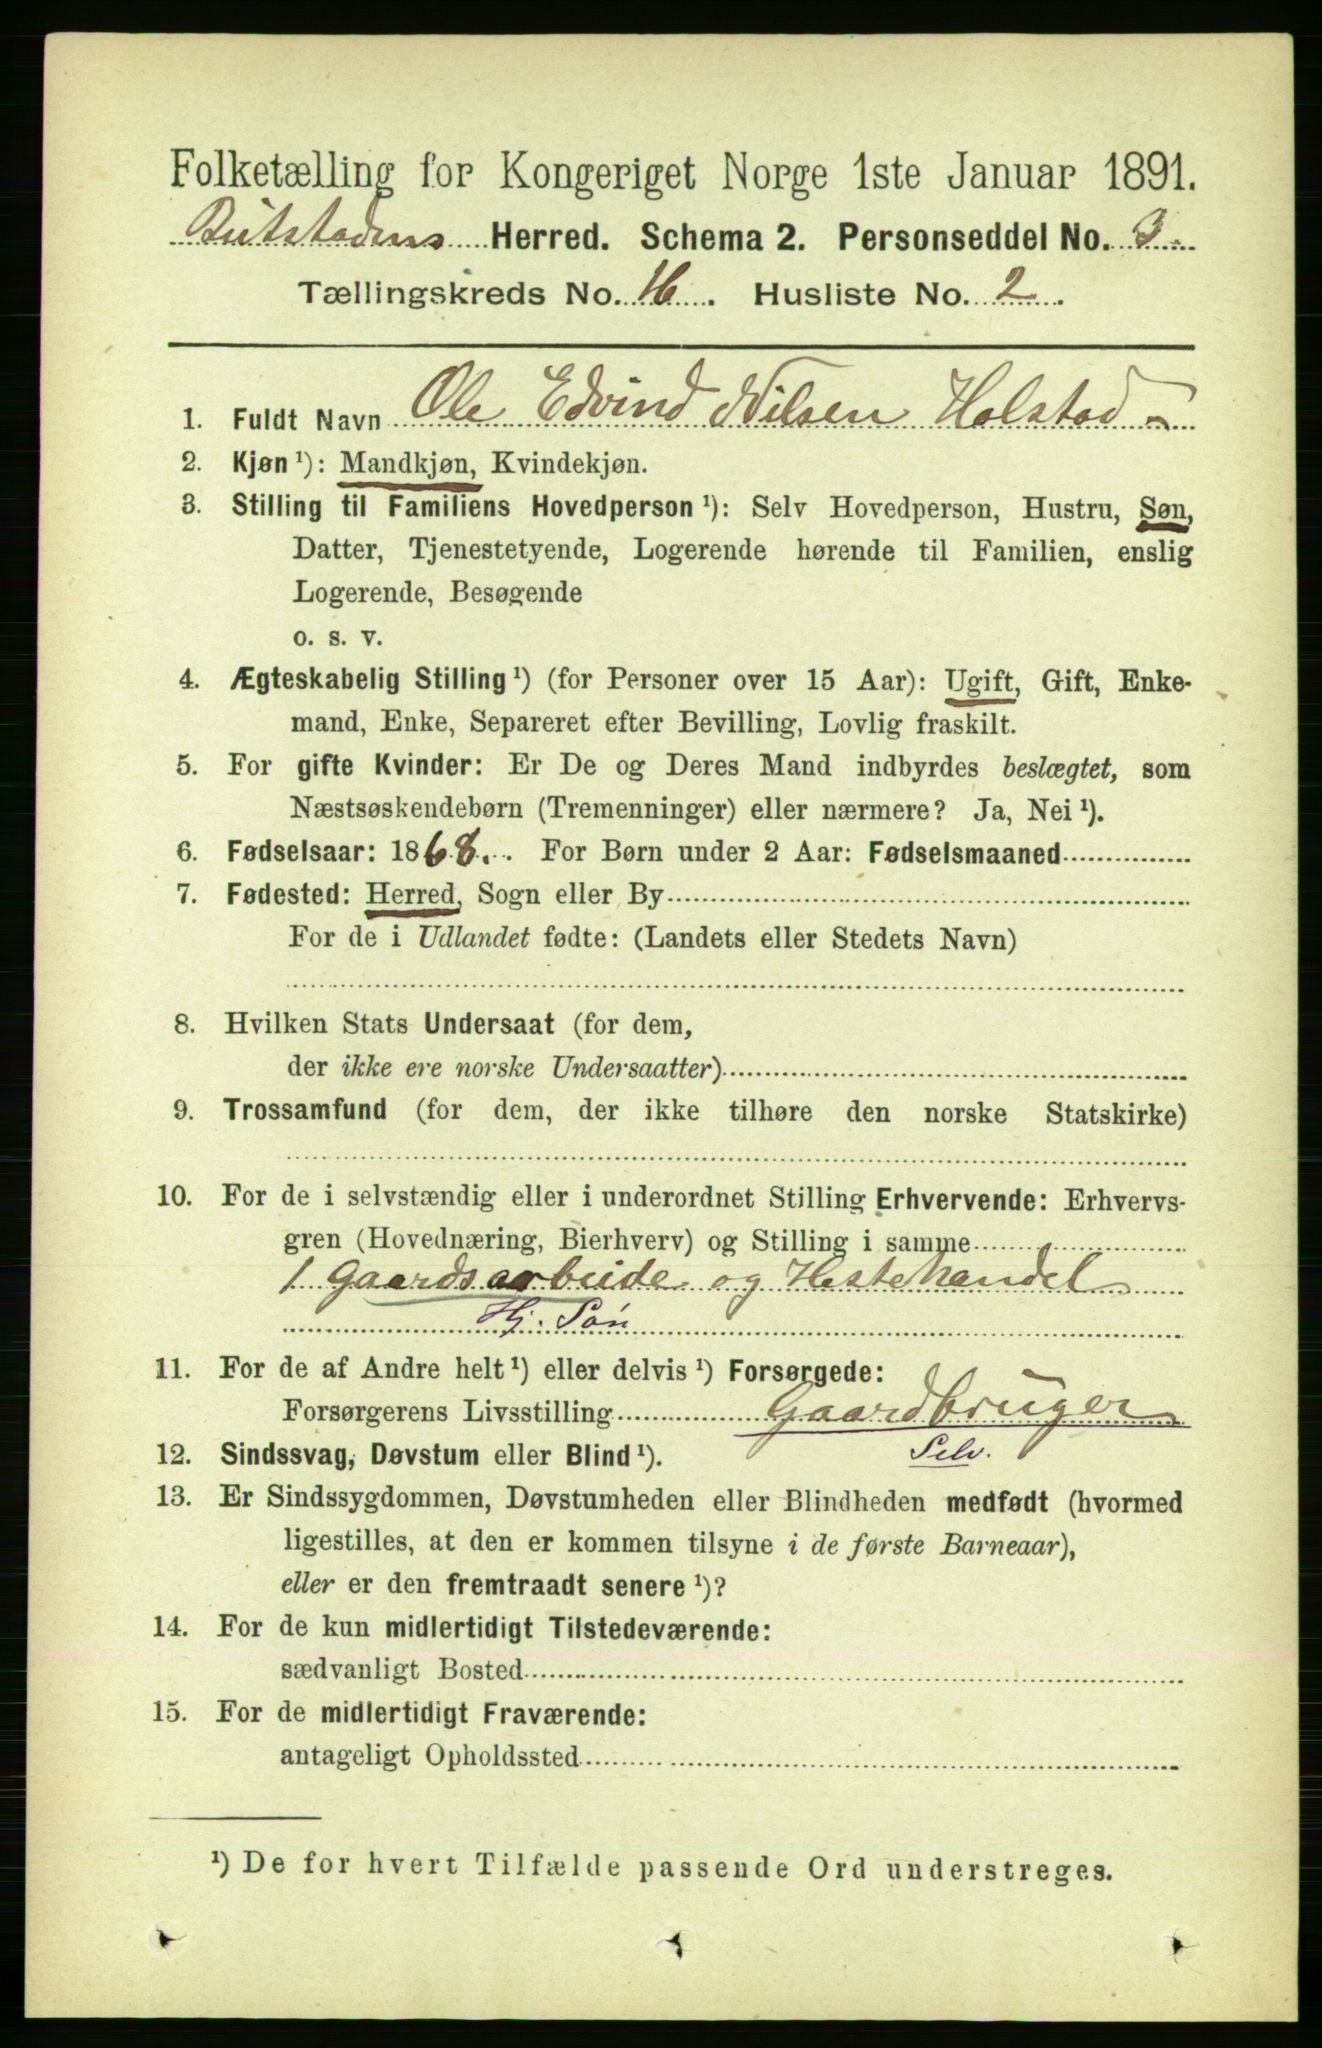 Folketælling for Kongeriget Norge 1ste Januar 1891.
Beitstadens Herred. Schema 2. Personseddel No. 3.
Tællingskreds No. 16. Husliste No. 2.
1. Fuldt Navn Ole Edvind Nilsen Holstad
2. Kjøn¹): Mandkjøn, Kvindekjøn.
3. Stilling til Familiens Hovedperson¹): Selv Hovedperson, Hustru, Søn,
Datter, Tjenestetyende, Logerende hørende til Familien, enslig
Logerende, Besøgende
o. s. v.
4. Ægteskabelig Stilling¹) (for Personer over 15 Aar): Ugift, Gift, Enke-
mand, Enke, Separeret efter Bevilling, Lovlig fraskilt.
5. For gifte Kvinder: Er De og Deres Mand indbyrdes beslægtet, som
Næstsøskendebørn (Tremenninger) eller nærmere? Ja, Nei¹).
6. Fødselsaar: 1868. For Børn under 2 Aar: Fødselsmaaned
7. Fødested: Herred, Sogn eller By
For de i Udlandet fødte: (Landets eller Stedets Navn)
8. Hvilken Stats Undersaat (for dem,
der ikke ere norske Undersaatter)
9. Trossamfund (for dem, der ikke tilhøre den norske Statskirke)
10. For de i selvstændig eller i underordnet Stilling Erhvervende: Erhvervs-
gren (Hovednæring, Bierhverv) og Stilling i samme
/ Gaardsarbeide og Hestehandel
Hj. Søn
11. For de af Andre helt¹) eller delvis¹) Forsørgede:
Forsørgerens Livsstilling Gaardbruger
12. Sindssvag, Døvstum eller Blind¹). Selv.
13. Er Sindssygdommen, Døvstumheden eller Blindheden medfødt (hvormed
ligestilles, at den er kommen tilsyne i de første Barneaar),
eller er den fremtraadt senere¹)?
14. For de kun midlertidigt Tilstedeværende:
sædvanligt Bosted
15. For de midlertidigt Fraværende:
antageligt Opholdssted
¹) De for hvert Tilfælde passende Ord understreges.